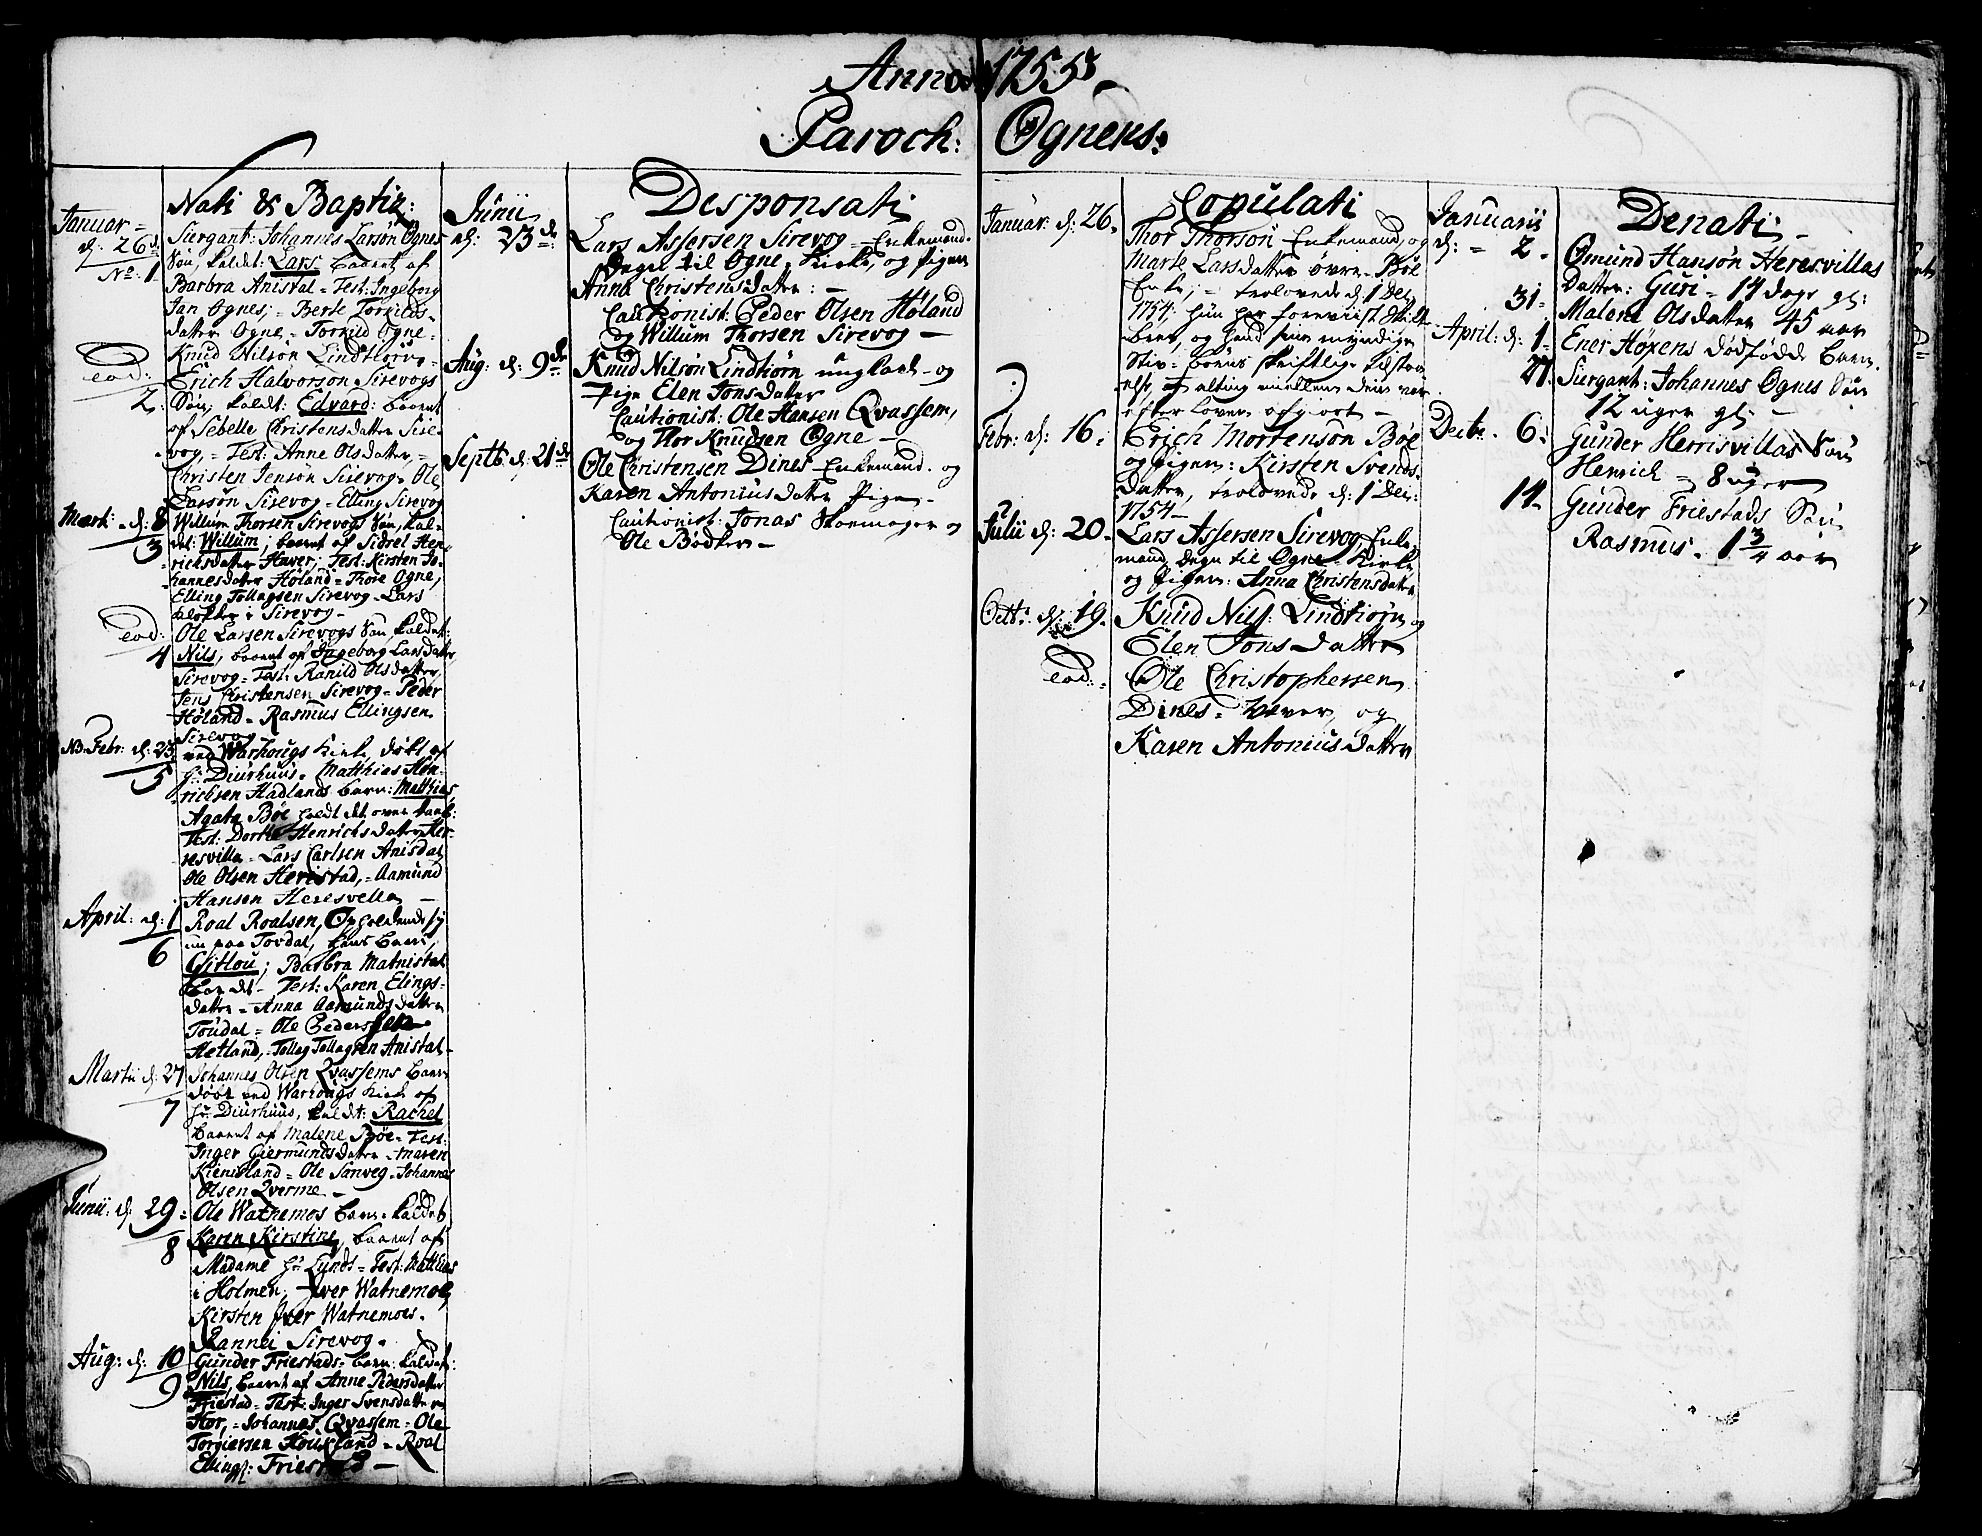 Anno 1755
Paroch: Ognens:
Nati & Baptiz:
Januar =
d: 26 d
No: 1
Siergant: Johannes Larsön Ognes
Søn, kaldt: Lars baaret af
Barbra Anistal = Test: Ingeborg
Jan Ognes; = Berte Torkilds-
datter Ogne = Torkild Ogne =
Knud Nilsön Lindtiörn =
eod:
2.
Erich Halvorsön Sirevogs
Søn, kaldt: Edvard: baaret
af Sebelle Christensdatter Sire-
vog, = Test: Anne Olsdatter, =
Christen Jensön Sirevog = Ole
Larsön Sirevog = Elling Sirevog
Marti: d: 8
3
Willum Thorsen Sirevogs Søn, kal-
det: Willum; baaret af Sidsel Hen-
ricksdatter Haver, Test: Kirsten Jo-
hannesdatter Høland = Thore Ogne,
Elling Tollagsen Sirevog = Lars
Klokker i Sirevog =
eod:
4
Ole Larsen Sirevogs Søn kaldet:
Nils, baaret af Ingeborg Larsdatter
Sirevog = Test: Ranild Olsdatter
Jens Christensen Sirevog = Peder
Høland = Rasmus Ellingsen
Sirevog =
NB Febr: d: 23
5
ved Warhougs Kirke døbt af
Hr: Diurhuus. Matthias Hen-
richsen Hadlands barn: Matthias
Agata Bøe holdt det over daab:
Test: Dorthe Henrichsdatter Her-
resvilla = Lars Carlsen Anisdal
Ole Olsen Herristad, = Aamund
Hansen Heresvella =
April: d: 1
6
Roal Roalsen, Opholdende sig
nu paa Tovdal, hans barn,
Gitlou; Barbra Matnistal
bar det = Test: Karen Elings-
datter = Anna Aamundsdatter
Toudal = Ole Pedersen
Hetland, = Tollag Tollagsen Anistal =
Martii d: 27
7
Johannes Olsen Qvassems barn
døbt ved Warhougs Kirke af
Hr: Diurhuus, kaldt: Rachel
baaret af Malene Bøe = Test:
Inger Giermundsdatter = Maren
Kiensland = Ole Sonveg = Johannes
Olsen Qverme =
Junii: d: 29 =
8
Ole Watnemos barn = kaldet
Karen Kirstine, baaret af
Madame Hr: Lunds = Test: Matthias
i Holmen, Iver Watnemoe,
Kirsten Iver Watnemoes.
Rannei Sirevog =
Aug: d: 10
9
Gunder Friestads = barn: kaldet:
Nils, baaret af Anne Pedersdatter
Friestad = Test: Inger Svensdatter
Hor, = Johannes Qvassem = Ole
Torgiersen Houkland = Roal
Ellings: Friestad =
Desponsati
Junii
d: 23 de:
Lars Assersen Sirevog = Enkemand.
Degn til Ogne = Kirke, og Pigen
Anna Christensdatter: =
Cautionist: Peder Olsen Høland
og Willum Thorsen Sirevog =
Aug: d: 9 de
Knud Nilsön Lindtiörn ungkarl = og
Pige Elen Jonsdatter
Cautionist: Ole Hansen Qvassem,
og Thor Knudsen Ogne =
Septb: d: 21 de
Ole Christensen Dines Enkemand = og
Karen Antoniusdatter Pige =
Cautionist: Jonas Skoemager og
Ole Bødker =
Copulati
Januar: d: 26.
Thor Thorsön Enkemand, og
Marte Larsdatter övre = Bøe
Enke, = trolovede d: 1 Dec:
1754: hun har foreviist skift-
brev, og hend sine myndige
Stiv = børns skriftlige tilstaa-
else, at alting mellem dem var
efter loven afgiort =
Febr: d: 16:
Erich Mortensön Bøe
og Pigen: Kirsten Svends
datter, trolovede d: 1 Dec:
1754 =
Julii d: 20.
Lars Assersen Sirevog, Enke
mand, Degn til Ogne = Kirke
og Pigen: Anna Christensdatter
Octb: d: 19.
Knud Nils: Lindtiörn og
Elen Jonsdatter
eod:
Ole Christophersen
Dines = Wever, og
Karen Antoniusdatter
Denati =
Januarii
d: = 2 =
Omund Hansön Heresvillas
Datter: Guri = 14 dage gl:
31 =
Malene Olsdatter 45 aar
April: d: 1 =
Ener Høxens dödfödde barn.
21.
Siergant: Johannes Ognes Søn
12 uger gl: =
Decbr. 6:
Gunder Herrisvillas Søn
Henrich = 8 uger
14.
Gunder Friestads Søn
Rasmus. 1 3/4 aar